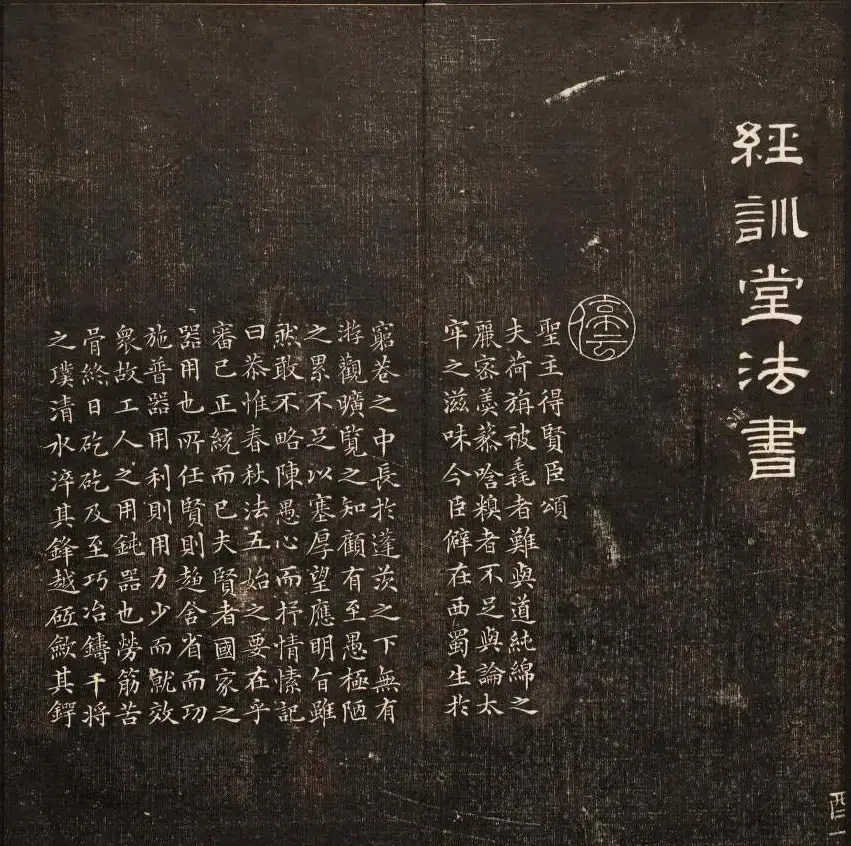 經訓堂法書
停云
聖主得賢臣頌
夫荷旃被毳者難與道純綿之
麗密羹藜唅糗者不足與論太
牢之滋味今臣僻在西蜀生於
窮巷之中長於蓬茨之下無有
游觀曠覽之知顧有至愚極陋
之累不足以塞厚望應明旨雖
然敢不略陳愚心而抒情愫記
曰恭惟春秋法五始之要在乎
審已正統而已夫賢者國家之
器用也所任賢則趍舍省而功
施普器用利則用力少而就效
衆故工人之用鈍器也勞筋苦
骨終日矻矻及至巧冶鑄干將
之璞清水淬其鋒越砥歛其鍔
酉一